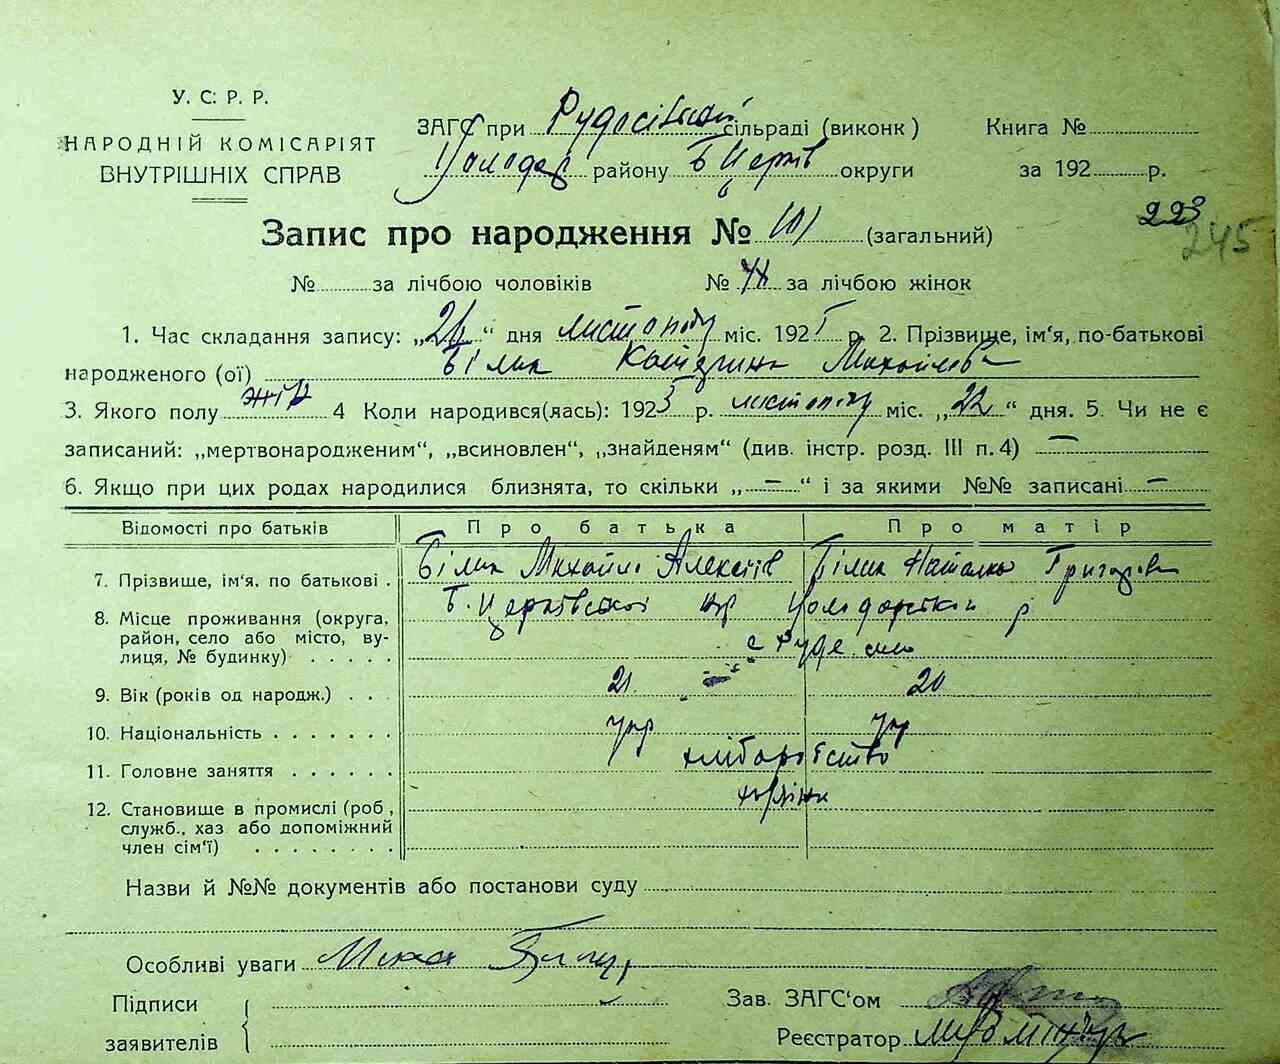 У. С. Р. Р.
НАРОДНІЙ КОМІСАРІЯТ
ВНУТРІШНІХ СПРАВ
ЗАГС при Рудосільській сільраді (виконк)
Володар району Б Церків округи
Книга №
за 192 р.
223
245
Запис про народження № 101 (загальний)
№ за лічбою чоловіків № за лічбою жінок
1. Час складання запису: „24“ дня листопаду міс. 1925 р. 2. Прізвище, ім‘я, по-батькові
народженого (ої) Білик Катерина Михайлівна
3. Якого полу жін 4 Коли народився(лась): 1925 р. листопаду міс. „22“ дня. 5. Чи не є
записаний: „мертвонародженим“, „всиновлен“, „знайденям“ (див. інстр. розд. III п. 4) —
6. Якщо при цих родах народилися близнята, то скільки „—“ і за якими №№ записані —
Відомості про батьків Про батька Про матір
7. Прізвище, ім‘я, по батькові . Білик Михайло Алексіїв Білик Наталка Григорівна
8. Місце проживання (округа, Б. Церківської окр Володарський р
район, село або місто, ву- с Руде село
лиця, № будинку) . . . . .
9. Вік (років од народж.) . . . 21 20
10. Національність . . . . . . . укр укр
11. Головне заняття . . . . . . хліборобство
12. Становище в промислі (роб.,
служб., хаз або допоміжний
член сім‘ї) . . . . . . . .
Назви й №№ документів або постанови суду
Особливі уваги
Підписи
заявителів
Зав. ЗАГС‘ом
Реєстратор